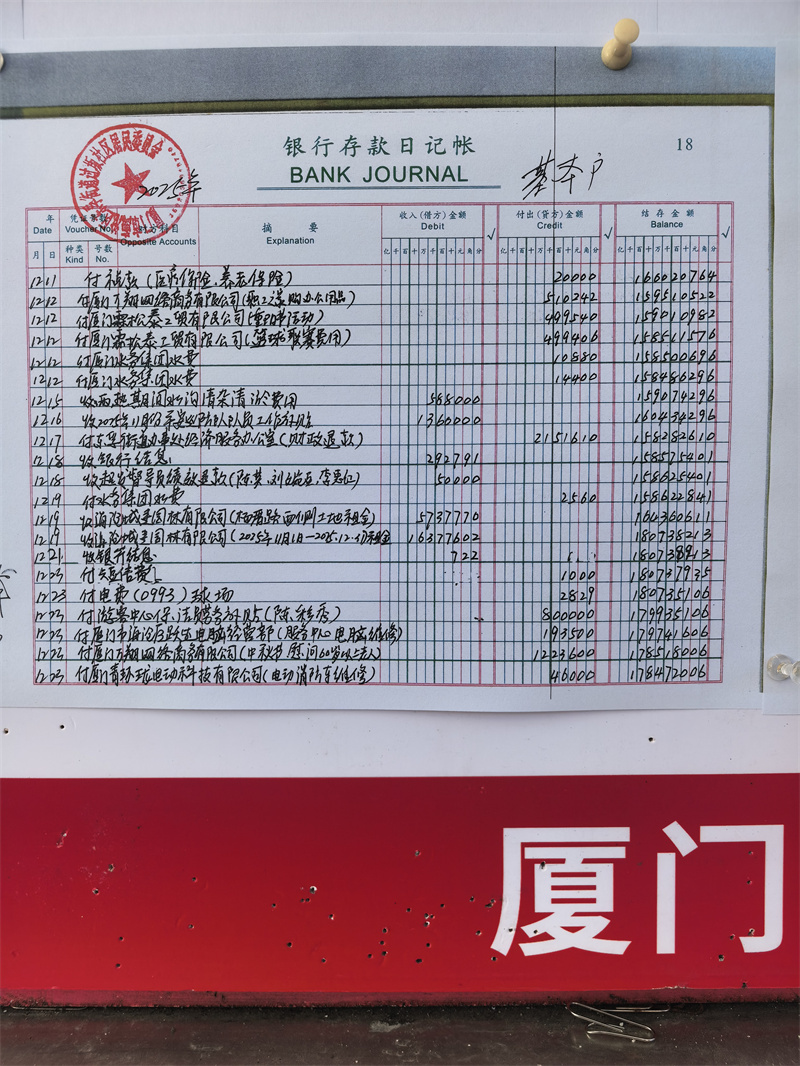 银行存款日记帐
18
BANK JOURNAL
2025年
基本户
年
Date
凭证票数
Voucher No.
对方科目
Opposite Accounts
摘 要
Explanation
收入(借方)金额
Debit
√
付出(贷方)金额
Credit
√
结存金额
Balance
√
月 日
种类
Kind
号数
No.
亿千百十万千百十元角分
亿千百十万千百十元角分
亿千百十万千百十元角分
12 11 付 (医疗保险、养老保险) 20000 166020764
12 12 付厦门万翔网络商务有限公司(职工 购办公用品) 510242 159510522
12 12 付厦门 松泰工贸有限公司( 活动) 499540 159010982
12 12 付厦门 松泰工贸有限公司(篮球联赛费用) 499406 158511576
12 12 付厦门水务集团水费 10880 158500696
12 12 付厦门水务集团水费 14400 158486296
12 15 收 期间 清杂清 费用 588000 159074296
12 16 收2025年11月份 队员工作补贴 1360000 160434296
12 17 付东孚街道办事处经济服务办公室(财政退款) 2151610 158282610
12 18 收银行结息 292791 158575401
12 18 收 督导员绩效退款(陈梦、刘 、李惠 ) 50000 158625401
12 19 付水务集团水费 2560 158622841
12 19 收海沧城建园林有限公司( 路西侧工地租金) 5737770 164360611
12 19 收海沧城建园林有限公司(2025年11月1日-2025.12. 租金 16377602 180738213
12 21 收银行结息 722 1807389
12 23 付短信费 1000 180737935
12 23 付电费(0993)球场 2829 180735106
12 23 付游客中心保洁 补贴(陈 秀) 800000 179935106
12 23 付厦门市海沧区跃 电脑经营部(服务中心电脑维修) 193500 179741606
12 23 付厦门万翔网络商务有限公司(中秋节慰问60岁以上老人) 1223600 178518006
12 23 付厦门青 电动科技有限公司(电动消防车维修) 46000 178472006
厦门